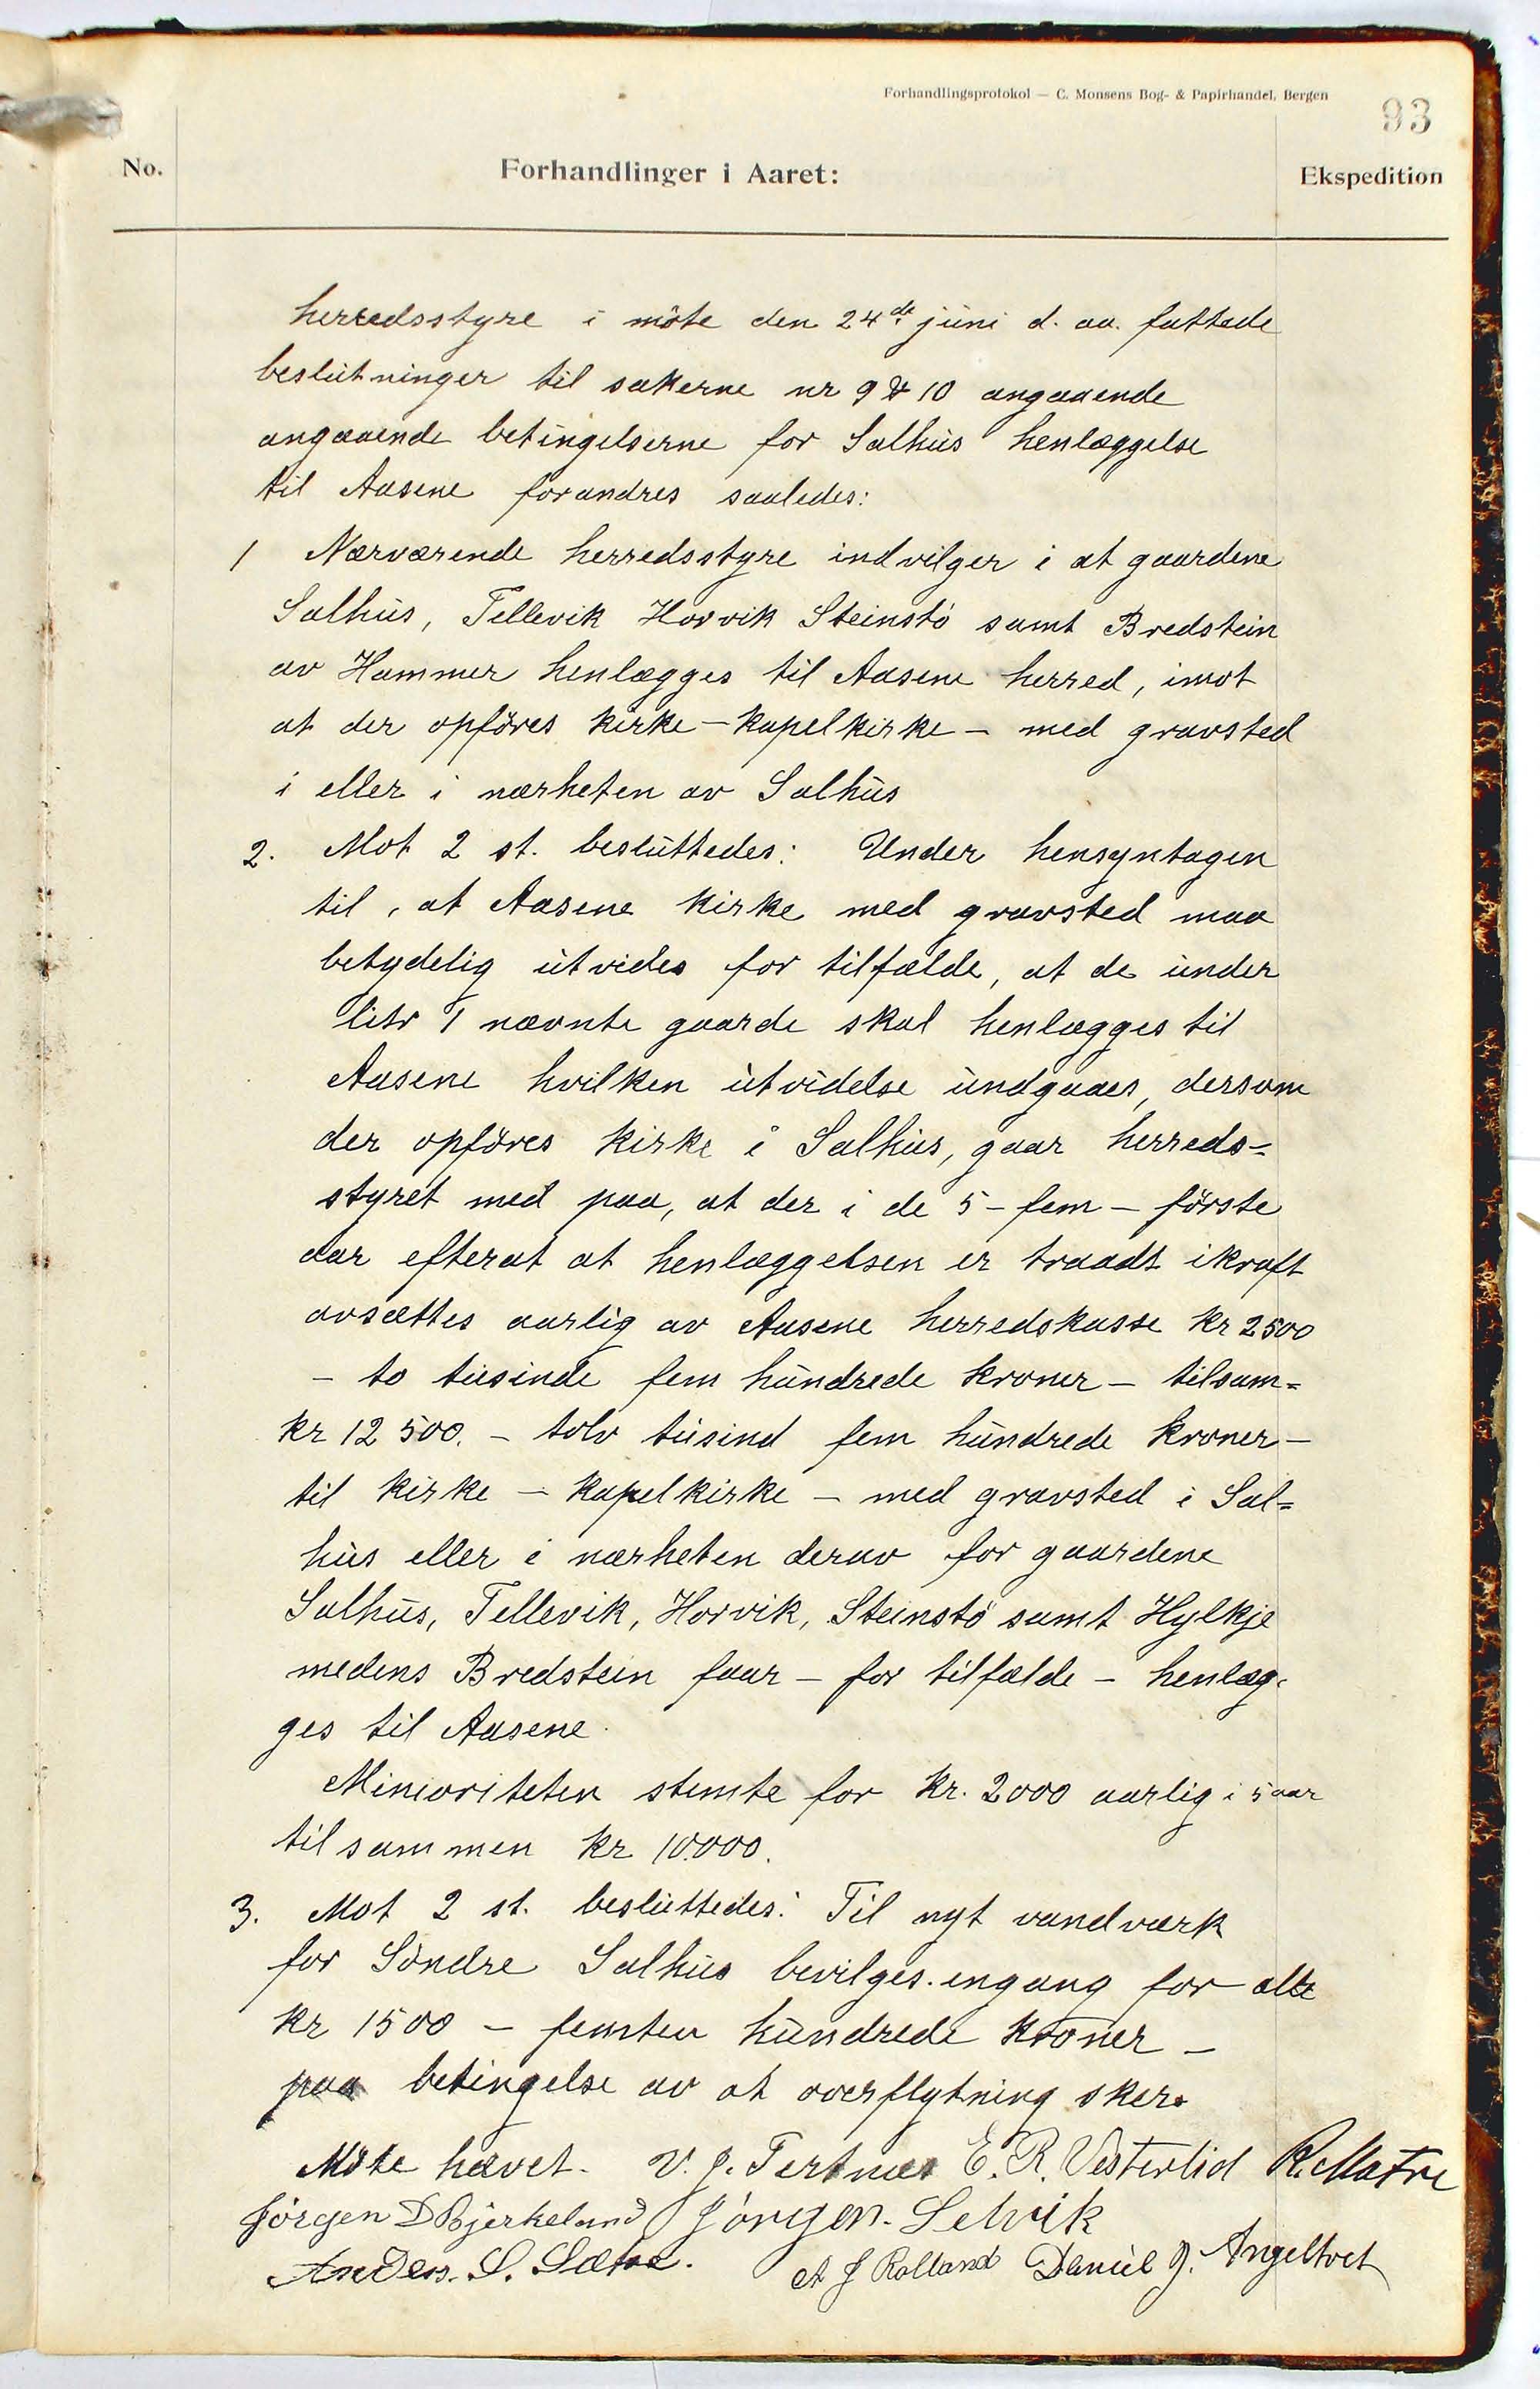 Forhandlingsprotokol — C. Monsens Bog- & Papirhandel, Bergen
93
No.
Forhandlinger i Aaret:
Ekspedition
herredsstyre i möte den 24de juni d. aa. fattede
beslutninger til sakerne nr 9 & 10 angaaende
angaaende betingelserne for Salhus henlæggelse
til Aasene forandres saaledes:
1 Nærværende herredsstyre indvilger i at gaardene
Salhus, Tellevik Horvik Steinstö samt Bredstein
av Hammer henlægges til Aasene herred, imot
at der opföres kirke – kapelkirke – med gravsted
i eller i nærheten av Salhus
2. Mot 2 st. besluttedes: Under hensyntagen
til, at Aasene kirke med gravsted maa
betydelig utvides for tilfælde, at de under
litr 1 nævnte gaarde skal henlægges til
Aasene hvilken utvidelse undgaaes, dersom
der opföres kirke i Salhus, gaar herreds=
styret med paa, at der i de 5 – fem – förste
aar efterat at henlæggelsen er traadt ikraft
avsættes aarlig av Aasene herredskasse kr 2500
– to tusinde fem hundrede kroner – tilsam=
kr 12 500. – tolv tusind fem hundrede kroner –
til kirke – kapelkirke – med gravsted i Sal=
hus eller i nærheten derav for gaardene
Salhus, Tellevik, Horvik, Steinstö samt Hylkje
medens Bredstein faar – for tilfælde – henlæg=
ges til Aasene.
Minioriteten stemte for kr. 2000 aarlig i 5 aar
tilsammen kr 10.000.
3. Mot 2 st. besluttedes: Til nyt vandværk
for Söndre Salhus bevilges engang for alle
kr 1500 – femten hundrede kroner –
paa betingelse av at overflytning sker.
Möte hævet. V. J. Tertnes E. R. Vesterlid R. Matre
Jörgen D Bjerkeland Jörgen. Selvik
Anders. S. Sætre. A J Rolland Daniel J. Angeltvet